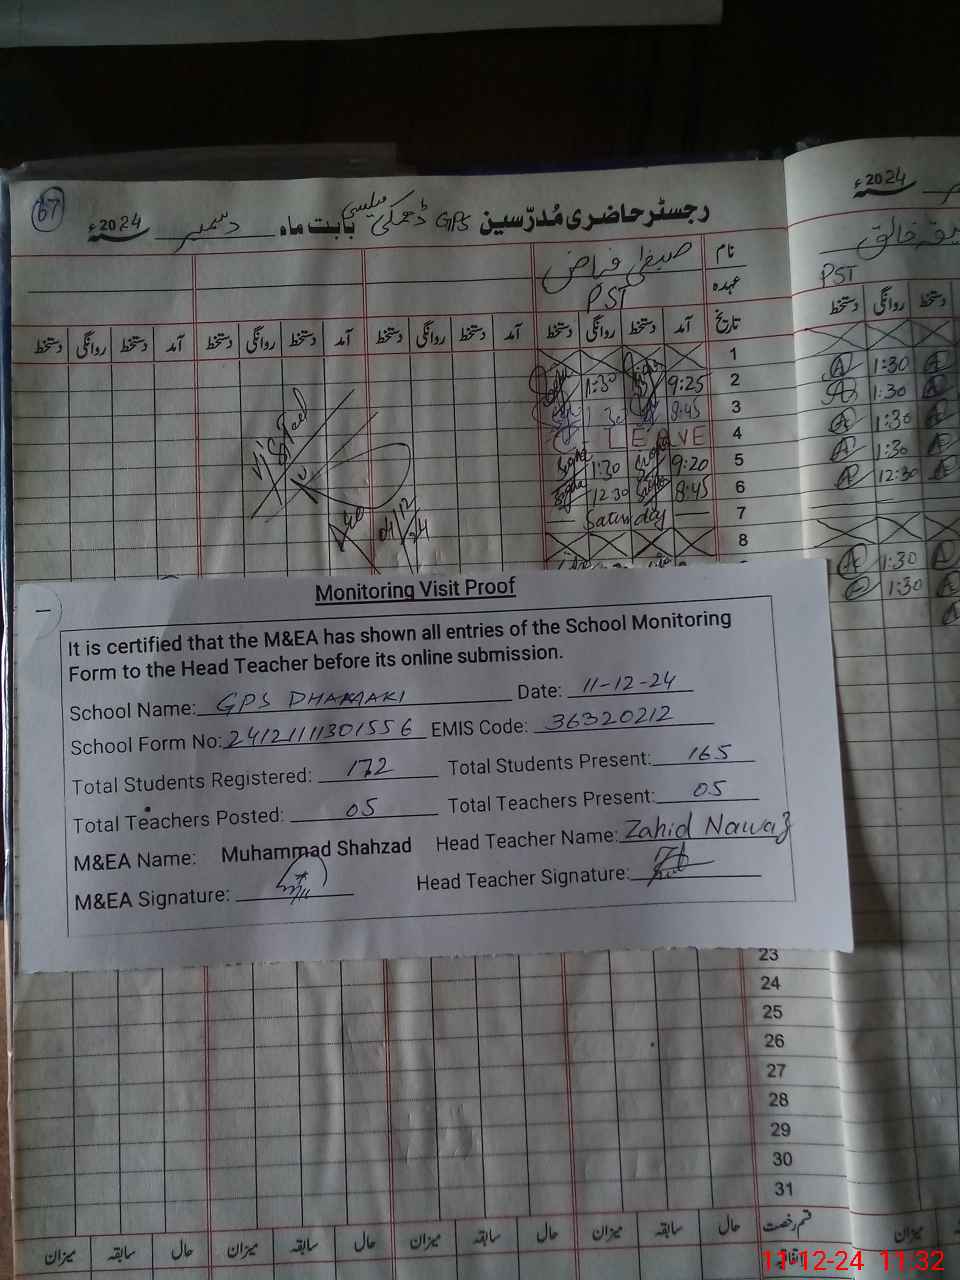 67
رجسٹر حاضری مُدرّسین GPS ڈھمکی میلسی بابت ماہ دسمبر 2024ء
2024ء
نام
عہدہ PST
PST
تاریخ آمد دستخط روانگی دستخط آمد دستخط روانگی دستخط آمد دستخط روانگی دستخط
دستخط روانگی دستخط
1
2 9:25 1:30 1:30
3 8:45 1:30 1:30
4 LEAVE 1:30
5 9:20 1:30 1:30
6 8:45 12:30 12:30
7 Saturday
8
1:30
1:30
Visited
AEO
04/12/24
Monitoring Visit Proof
It is certified that the M&EA has shown all entries of the School Monitoring
Form to the Head Teacher before its online submission.
School Name: GPS DHAMAKI Date: 11-12-24
School Form No: 2412111301556 EMIS Code: 36320212
Total Students Registered: 172 Total Students Present: 165
Total Teachers Posted: 05 Total Teachers Present: 05
M&EA Name: Muhammad Shahzad Head Teacher Name: Zahid Nawaz
M&EA Signature: Head Teacher Signature:
23
24
25
26
27
28
29
30
31
قسم رخصت حال سابقہ میزان حال سابقہ میزان حال سابقہ میزان حال سابقہ میزان
میزان
11-12-24 11:32